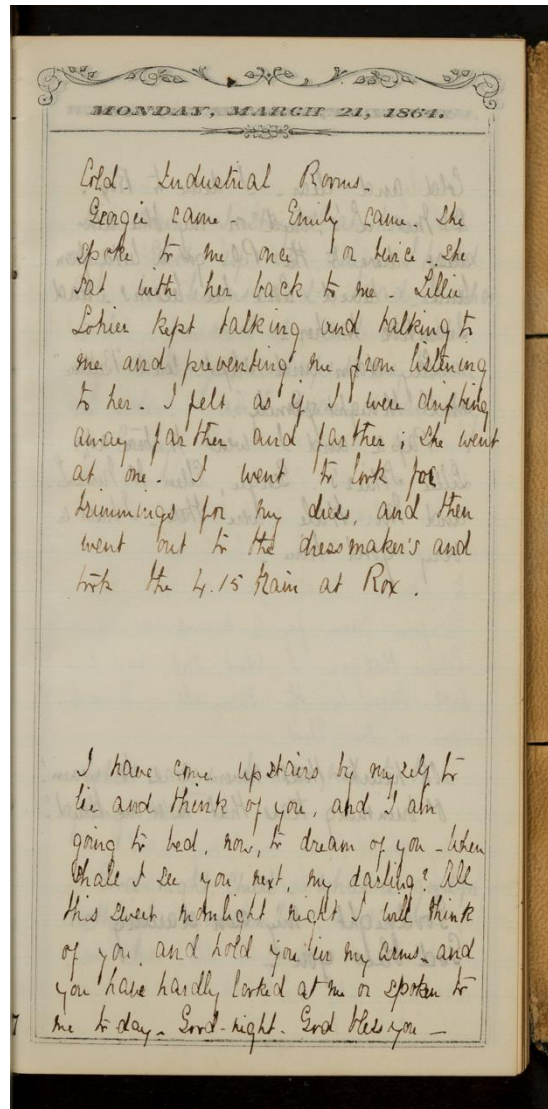 MONDAY, MARCH 21, 1864.
Cold Industrial Rooms.
Georgie came. Emily came. She
spoke to me once or twice. She
sat with her back to me. Lillie
kept talking and talking to
me and preventing me from listening
to her. I felt as if I were drifting
away farther and farther; She went
at one. I went to look for
trimmings for my dress, and then
went out to the dressmaker's and
took the 4.15 train at Rox.
I have come upstairs by myself to
lie and think of you, and I am
going to bed, now, to dream of you - When
shall I see you next, my darling? All
this sweet moonlight night I will think
of you, and hold you in my arms - and
you have hardly looked at me or spoken to
me to-day - Good-night - God bless you -